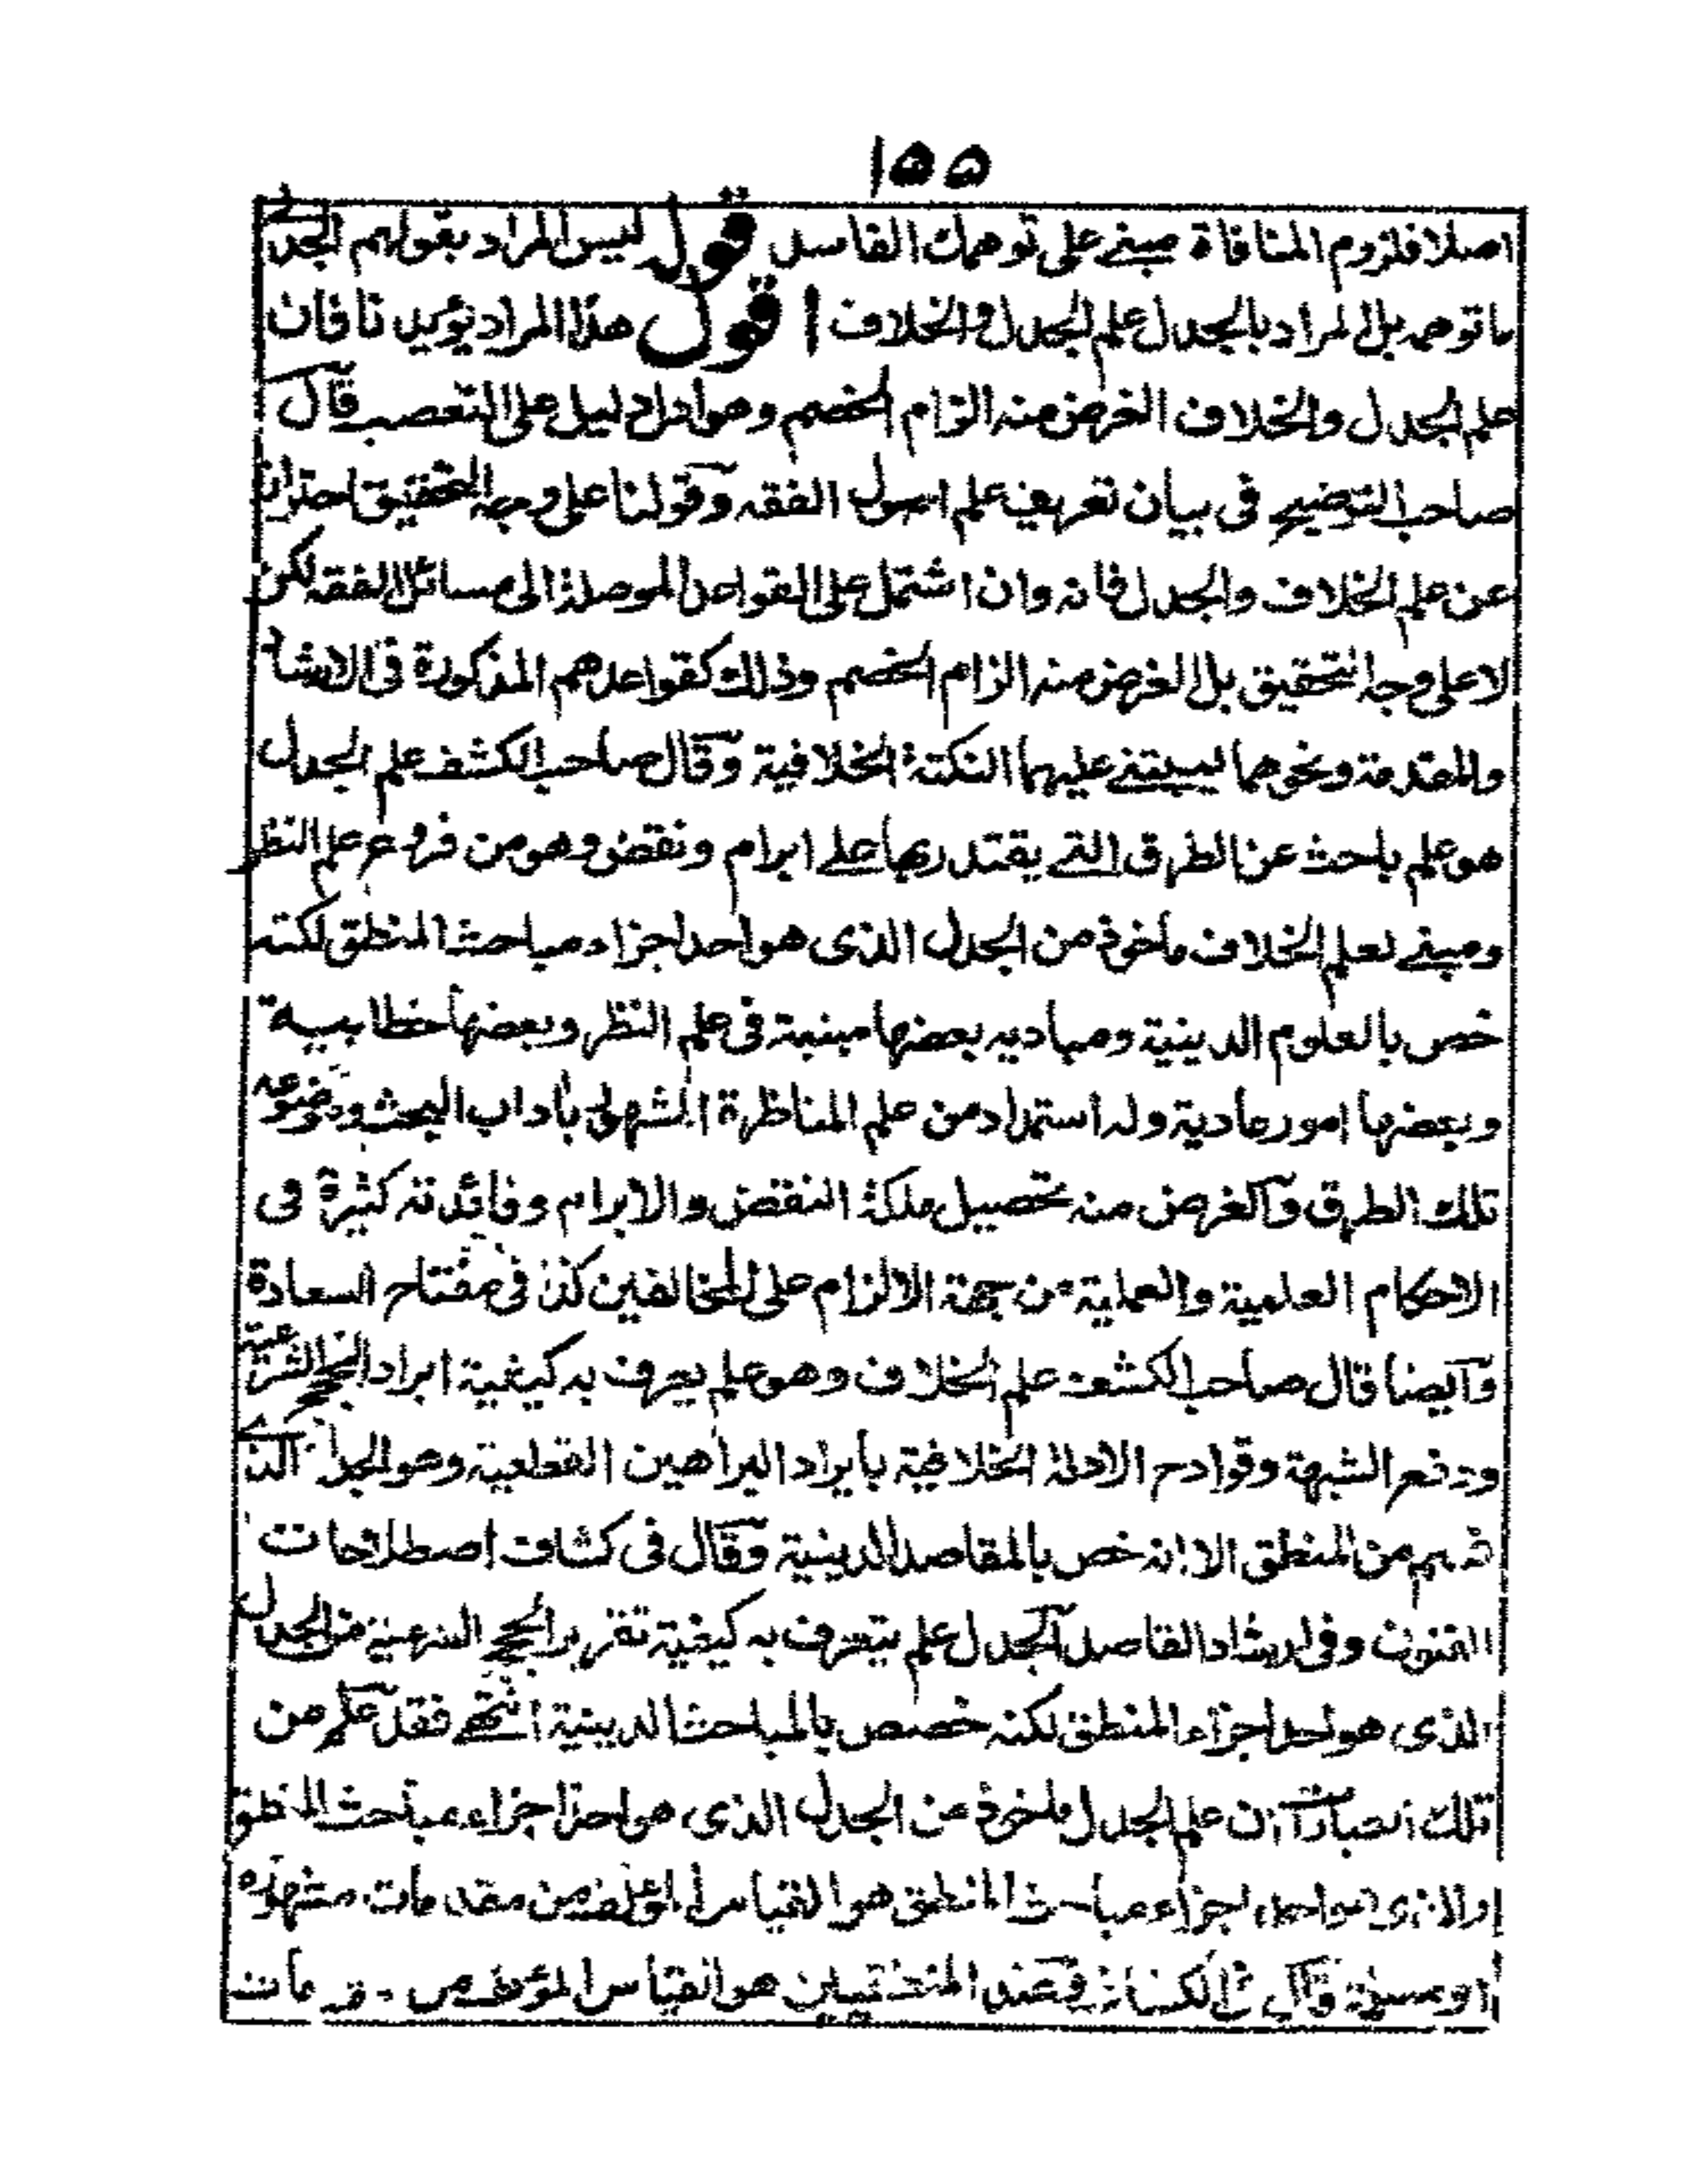 ١٥٥
اصلا فلزوم المنافاة مبنے على توهمك الفاسد قوله ليس المراد بقولهم الجدلے
ما توهمه بل المراد بالجدل علم الجدل والخلاف اقول هذا المراد يؤيدنا فان
علم الجدل والخلاف الغرض منه الزام الخصم وهو ادل دليل على التعصب قال
صاحب التوضيح فى بيان تعريف علم اصول الفقه وقولنا على وجه التحقيق احتراز
عن علم الخلاف والجدل فانه وان اشتمل على القواعد الموصلة الى مسائل الفقه لكن
لا على وجه التحقيق بل الغرض منه الزام الخصم وذلك كقواعدهم المذكورة فى الارشاد
والمقدمة ونحوهما ليبتنے عليهما النكتة الخلافية وقال صاحب الكشف علم الجدل
هو علم باحث عن الطرق التے يقتدر بها علے ابرام ونقض وهو من فروع علم النظر
ومبنے لعلم الخلاف ماخوذ من الجدل الذى هو احد اجزاء مباحث المنطق لكنه
خص بالعلوم الدينية ومباديه بعضها مبنية فى علم النظر وبعضها خطابية
وبعضها امور عادية وله استمداد من علم المناظرة المشهور بآداب البحث وموضوعه
تلك الطرق والغرض منه تحصيل ملكة النقض والابرام وفائدته كثيرة فى
الاحكام العلمية والعملية من جهة الالزام على المخالفين كذا فى مفتاح السعادة
وايضا قال صاحب الكشف علم الخلاف وهو علم يعرف به كيفية ايراد الحجج الشرعية
ودفع الشبهة وقوادح الادلة الخلافية بايراد البراهين القطعية وهو الجدل الذے
قسم من المنطق الا انه خص بالمقاصد الدينية وقال فى كشاف اصطلاحات
الفنون وفى ارشاد القاصد الجدل علم يتعرف به كيفية تقرير الحجج الشرعية من الجدل
الذى هو احد اجزاء المنطق لكنه خصص بالمباحث الدينية انتهى فقد علم من
تلك العبارات ان علم الجدل ماخوذ من الجدل الذى هو احد اجزاء مباحث المنطق
والذى هو احد اجزاء مباحث المنطق هو القياس المؤلف من مقدمات مشهورة
او مسلمة قال فى الكشاف وعند المنطقيين هو القياس المؤلف من مقدمات